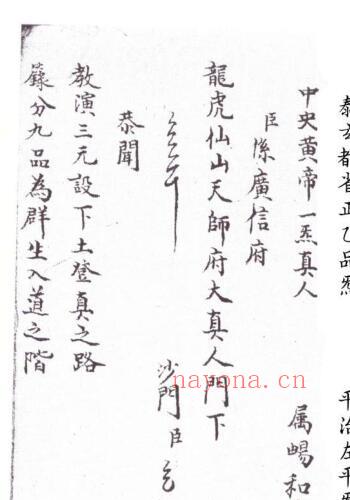 泰玄都省正乙品炁
平治左平炁
中央黃帝一炁真人
属暘和
臣係廣信府
龍虎仙山天師府大真人門下
沙門臣
恭聞
教演三元設下土登真之路
籙分九品為群生入道之階
nayona.cn